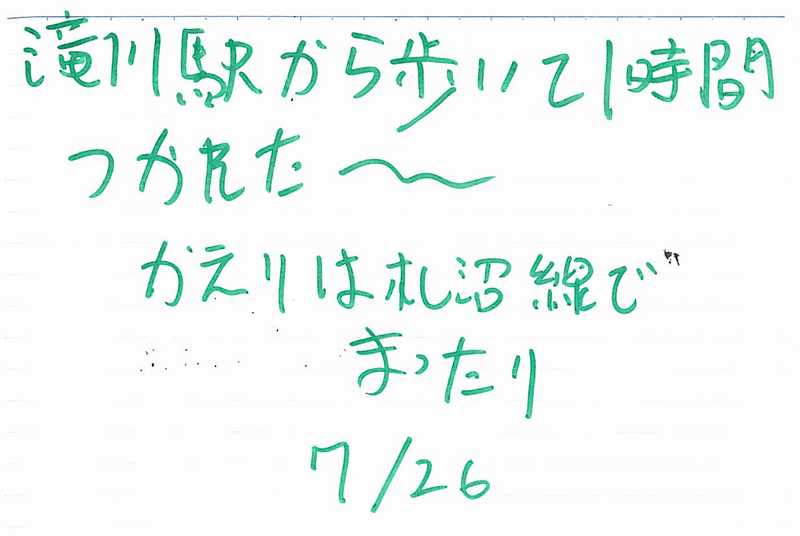 滝川駅から歩いて1時間
つかれた〜
かえりは札沼線で
まったり
7/26